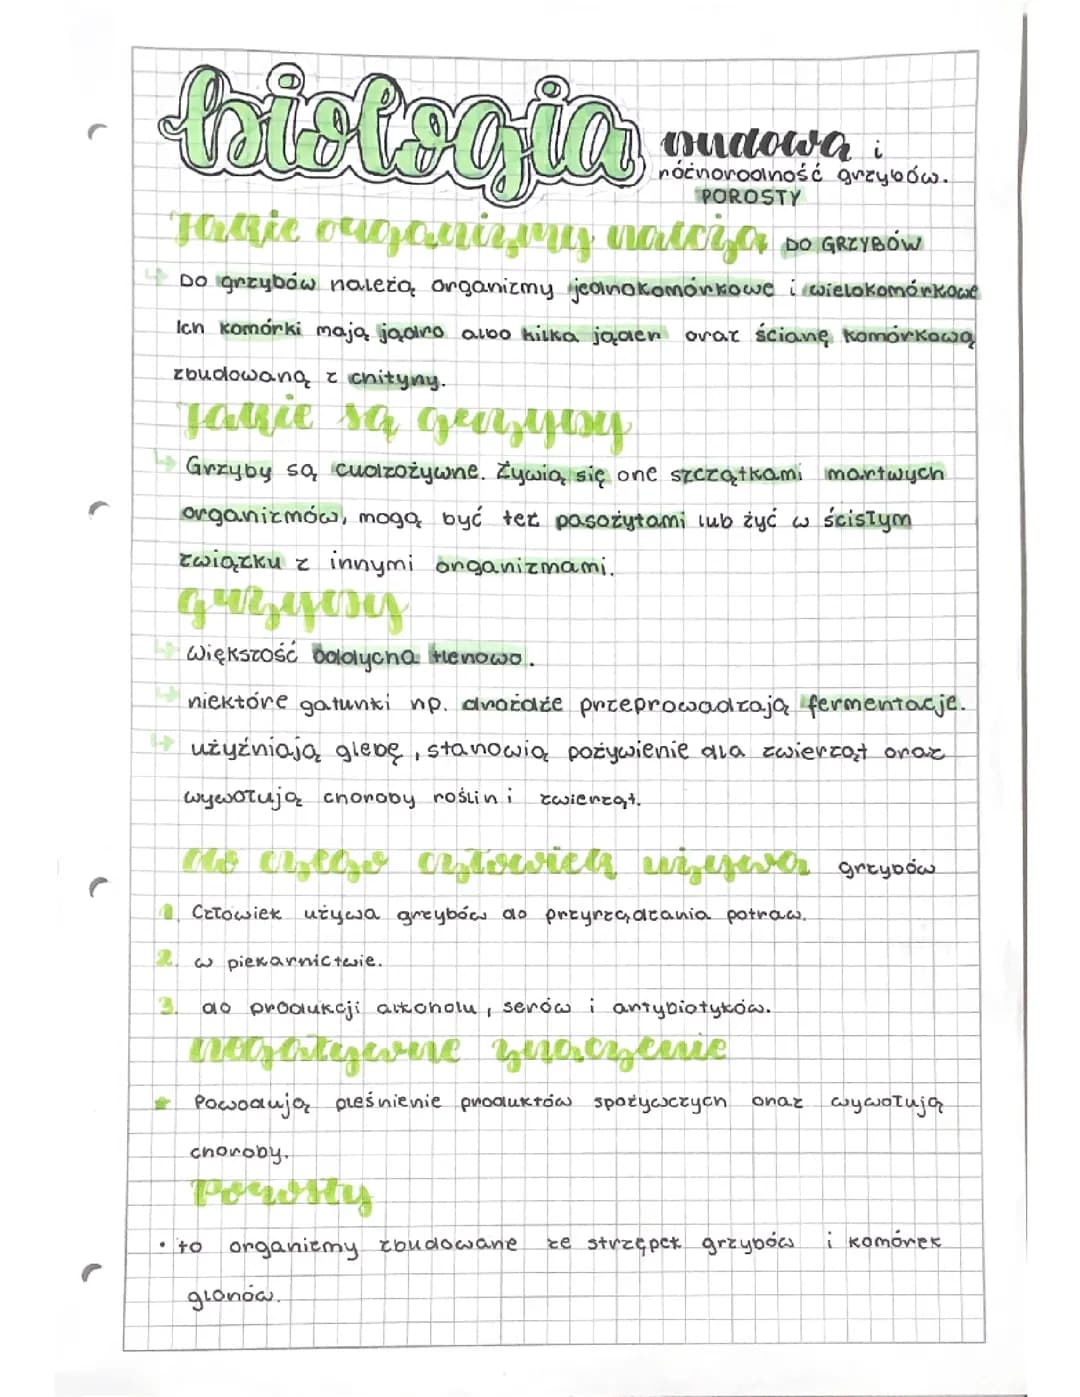 biologia
budowa i
różnorodność grzybów.
POROSTY
Jakie organizmy należą DO GRZYBÓW
Do grzybów należą organizmy jednokomórkowe i wielokomórkowe
Ich komórki mają jądro albo kilka jąder oraz ścianę komórkową
zbudowaną z chityny.
Jakie są grzyby
Grzyby są cudzożywne. Żywią się one szczątkami martwych
organizmów, mogą być też pasożytami lub żyć w ścisłym
związku z innymi organizmami.
grzyby
większość oddycha tlenowo.
niektóre gatunki np. drożdże przeprowadzają fermentację.
użyźniają glebę, stanowią pożywienie dla zwierząt oraz
wywołują choroby roślin i zwierząt.
do czego człowiek używa grzybów
1. Człowiek używa grzybów do przyrządzania potraw.
2. w piekarnictwie.
3. do produkcji alkoholu, serów i antybiotyków.
negatywne znaczenie
Powodują pleśnienie produktów spożywczych oraz wywołują
choroby.
Porosty
• to organizmy zbudowane ze strzępek grzybów i komórek
glonów.